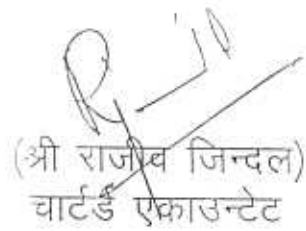 (श्री राजीव जिन्दल)
चार्टर्ड एकाउन्टेट